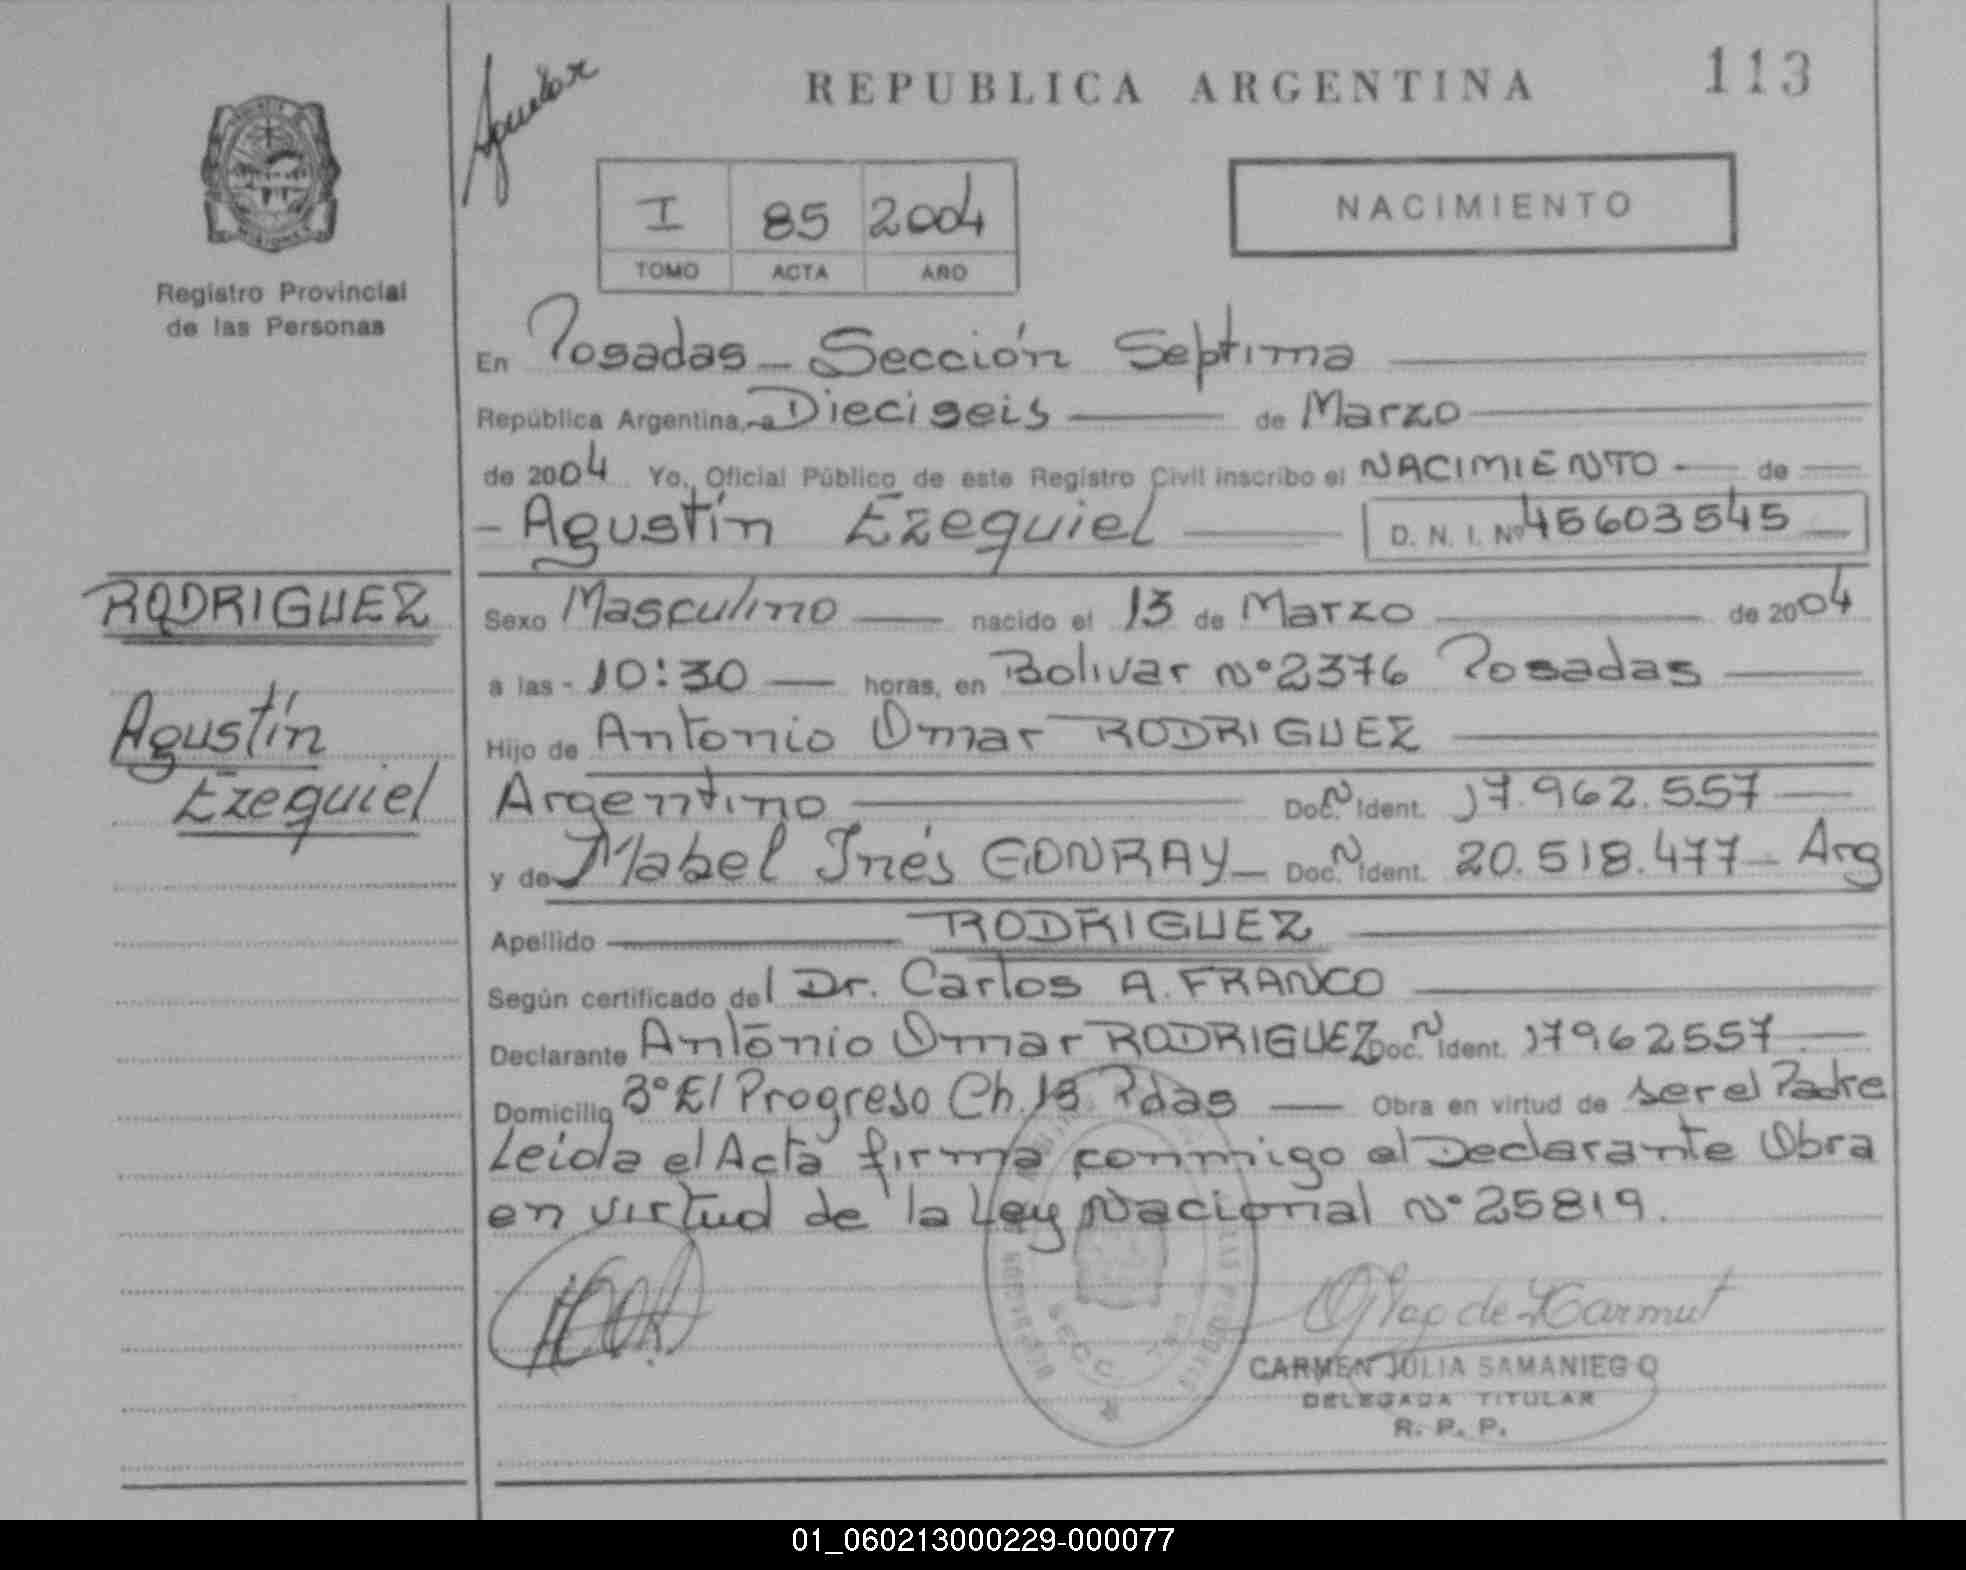 REPUBLICA ARGENTINA
113
I 85 2004
TOMO ACTA AÑO
NACIMIENTO
Registro Provincial
de las Personas
En Posadas - Sección Septima
República Argentina, a Dieciseis de Marzo
de 2004 Yo, Oficial Público de este Registro Civil inscribo el NACIMIENTO de
- Agustín Ezequiel D. N. I. Nº 45603545
RODRIGUEZ
Agustín
Ezequiel
Sexo Masculino nacido el 13 de Marzo de 2004
a las - 10:30 horas, en Bolivar Nº 2376 Posadas
Hijo de Antonio Omar RODRIGUEZ
Argentino Doc. N Ident. 17.962.557
y de Mabel Inés GONRAY - Doc. N Ident. 20.518.477 - Arg
Apellido RODRIGUEZ
Según certificado del Dr. Carlos A. FRANCO
Declarante Antonio Omar RODRIGUEZ Doc. N Ident. 17962557
Domicilio Bº El Progreso Ch. 13 Pdas Obra en virtud de ser el Padre
Leida el Acta firma conmigo el Declarante Obra
en virtud de la Ley Nacional Nº 25819.
SECC. 7
CARMEN JULIA SAMANIEGO
DELEGADA TITULAR
R. P. P.
01_060213000229-000077